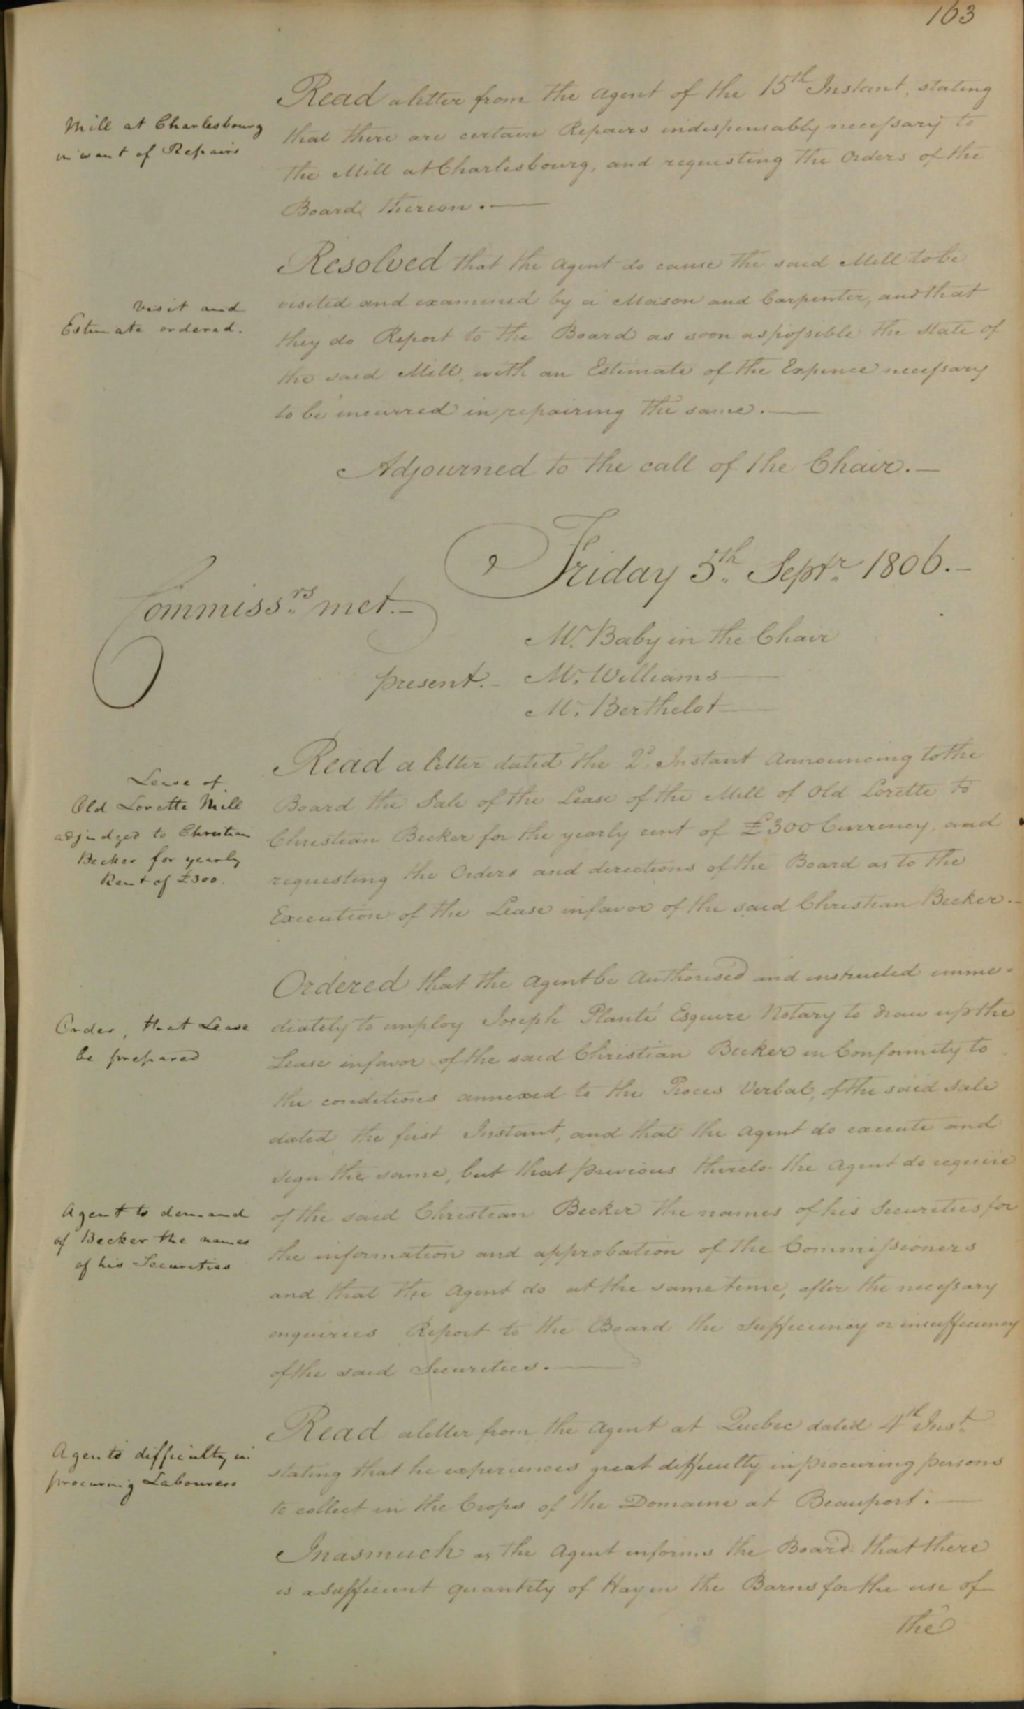 163
Read a letter from the Agent of the 15th Instant, stating
Mill at Charlesbourg
in want of Repairs
that there are certain Repairs indispensably necessary to
the Mill at Charlesbourg, and requesting the Orders of the
Board thereon.
Resolved that the Agent do cause the said Mill to be
visit and
Estimate ordered.
visited and examined by a Mason and Carpenter, and that
they do Report to the Board as soon as possible the state of
the said Mill, with an Estimate of the Expence necessary
to be incurred in repairing the same.
Adjourned to the call of the Chair.
Friday 5th Septr 1806.
Commissrs met.
Mr Baby in the Chair
present. Mr Williams
Mr Berthelot
Read a letter dated the 2d Instant Announcing to the
Lease of
Old Lorette Mill
adjudged to Christian
Becker for yearly
Rent of £300.
Board the Sale of the Lease of the Mill of Old Lorette to
Christian Becker for the yearly rent of £300 Currency, and
requesting the Orders and directions of the Board as to the
Execution of the Lease in favor of the said Christian Becker.
Ordered that the Agent be Authorised and instructed imme-
Order, that Lease
be prepared
diately to employ Joseph Planté Esquire Notary to draw up the
Lease in favor of the said Christian Becker in Conformity to
the conditions annexed to the Proces Verbal, of the said sale
dated the first Instant, and that the Agent do execute and
sign the same, but that previous thereto the Agent do require
Agent to demand
of Becker the names
of his Securities
of the said Christian Becker the names of his Securities for
the information and approbation of the Commissioners
and that the Agent do at the same time, after the necessary
enquiries Report to the Board the sufficiency or insufficiency
of the said Securities.
Read a letter from the Agent at Quebec dated 4th Inst.
Agents difficulty in
procuring Labourers
stating that he experiences great difficulty in procuring persons
to collect in the Crops of the Domaine at Beauport.
Inasmuch as the Agent informs the Board that there
is a sufficient quantity of Hay in the Barns for the use of
the